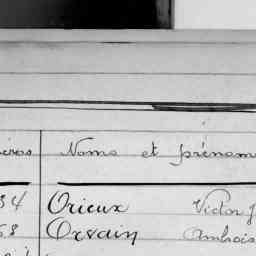 Noms et prénom
34 Orieux Victor J
68 Orvain Ambrois